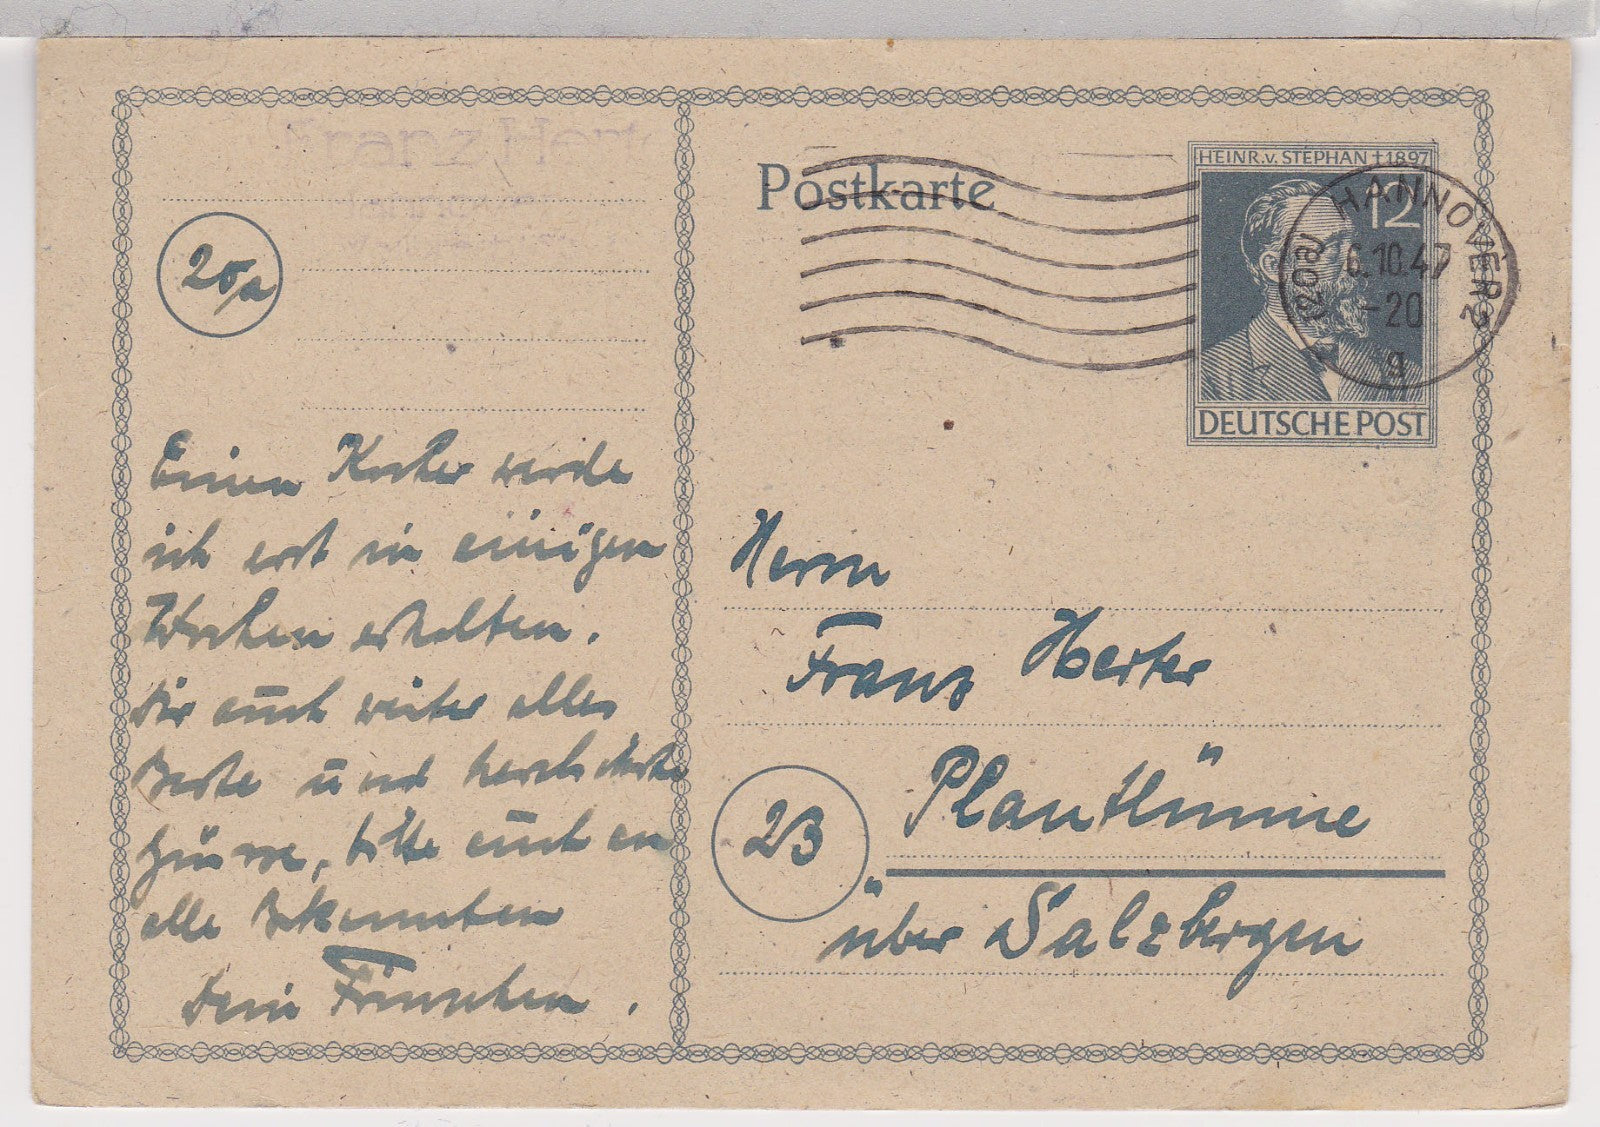 Franz Hert
20/a
Einen Koffer werde
ich erst in einigen
Wochen erhalten.
Dir auch weiter alles
Beste und herzlichste
Grüsse, bitte auch an
alle Bekannten
Dein Fränzchen.
Postkarte
HEINR.v.STEPHAN †1897
12
DEUTSCHE POST
(20a) HANNOVER 2
6.10.47
-20
g
Herrn
Franz Herter
23
Plantlünne
über Salzbergen